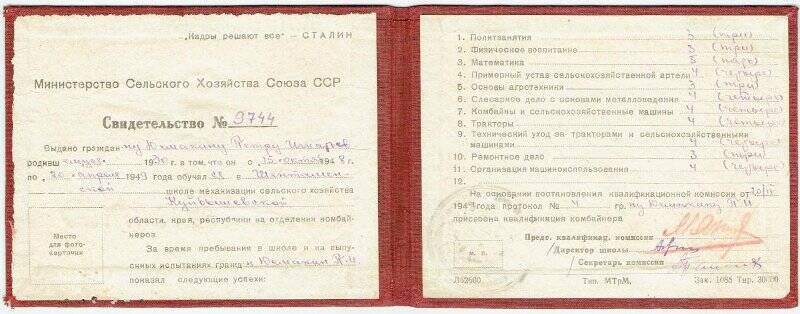 „Кадры решают все" – СТАЛИН
Министерство Сельского Хозяйства Союза ССР
Свидетельство № 9744
Выдано граждан ну Юмакину Петру
родивш 1930 г. в том, что он с 15 октября 1948 г.
по 20 апреля 1949 обучал ся в Шенталин-
ской школе механизации сельского хозяйства
Куйбышевской
области, края, республики на отделении комбай-
неров
За время пребывания в школе и на выпу-
скных испытаниях гражд н Юмакин П.И
показал следующие успехи:
Место
для фото-
карточки
1. Политзанятия 3 (три)
2. Физическое воспитание 3 (три)
3. Математика 5 (пять)
4. Примерный устав сельскохозяйственной артели 4 (четыре)
5. Основы агротехники 3 (три)
6. Слесарное дело с основами металловедения 4 (четыре)
7. Комбайны и сельскохозяйственные машины 4 (четыре)
8. Тракторы 4 (четыре)
9. Технический уход за тракторами и сельскохозяйственными
машинами 4 (четыре)
10. Ремонтное дело 3 (три)
11. Организация машиноиспользования 4 (четыре)
12.
На основании постановления квалификационной комиссии от 20/IV
1949 года протокол № 4 гр. ну Юмакину П.И
присвоена квалификация комбайнера
Предс. квалификац. комиссии
Директор школы
Секретарь комиссии
м. п.
Л52600 Тип. МТрМ. Зак. 1088 Тир. 30000